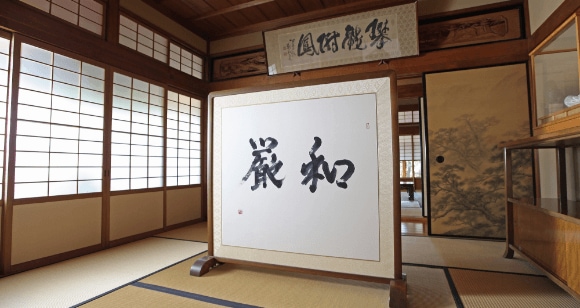 攀龍附鳳
和厳